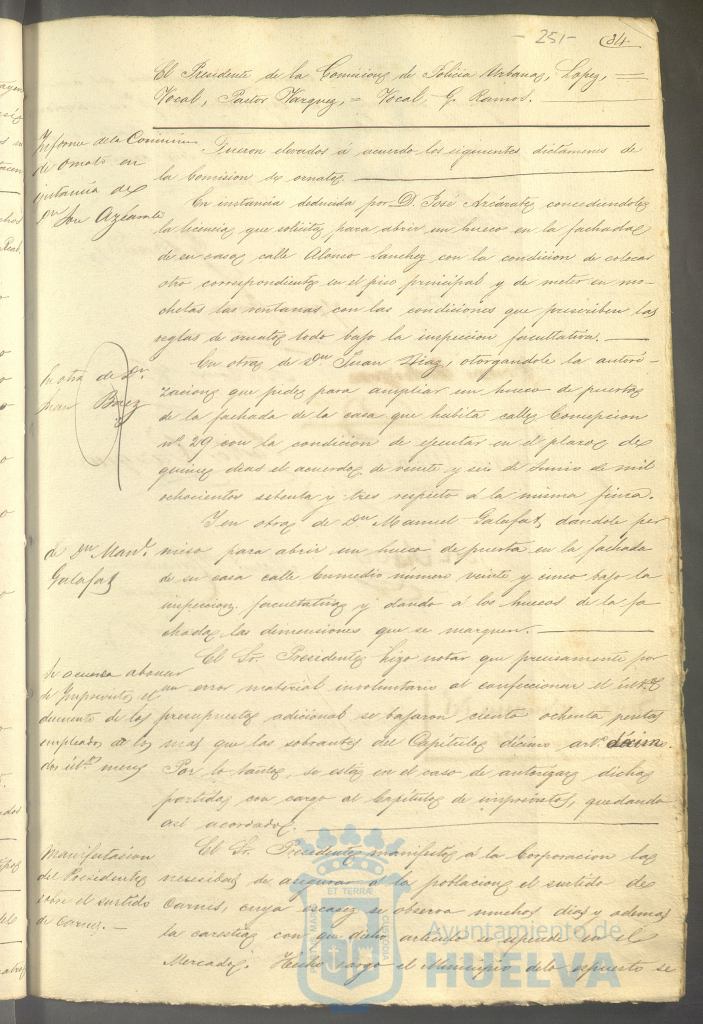 - 251 -
84
El Presidente de la Comision de Policia Urbana, Lopez, =
Vocal, Pastor Vazquez, = Vocal, G. Ramos.
Informe de la Comision
de ornato en
instancia de
Dn Jose Azcarate
Fueron elevados á acuerdo los siguientes dictámenes de
la Comision de ornato.
En instancia deducida por D. José Azcarate, concediendole
la licencia que solicita para abrir un hueco en la fachada
de su casa calle Alonso Sanchez con la condicion de colocar
otro correspondiente en el piso principal y de meter en mo-
chetas las ventanas con las condiciones que prescriben las
reglas de ornato todo bajo la inspeccion facultativa.
En otra de Dn.
Juan
En otra de Dn Juan Diaz, otorgandole la autori-
zacion que pide para ampliar un hueco de puerta
de la fachada de la casa que habita calle Concepcion
nº. 29 con la condicion de ejecutar en el plazo de
quince dias el acuerdo de veinte y seis de Junio de mil
ochocientos setenta y tres respeto á la misma finca.
de Dn Manl.
Galafat
Y en otra de Dn Manuel Galafat, dandole per
miso para abrir un hueco de puerta en la fachada
de su casa calle Enmedio numero veinte y cinco bajo la
inspeccion facultativa y dando á los huecos de la fa
chada las dimensiones que se marquen.
Se acuerda abonar
de Imprevistos el
aumento de los
empleados de los
dos últ.os meses
El Sr. Presidente hizo notar que precisamente por
un error material involuntario al confeccionar el
presupuesto adicional se bajaron ciento ochenta pesetas
mas que las sobrantes del Capitulo décimo artº.
Por lo tanto, se está en el caso de autorizar dicha
partida con cargo al Capitulo de imprevistos, quedando
asi acordado.
Manifestacion
del Presidente
sobre el surtido
de Carnes. -
El Sr. Presidente manifestó á la Corporacion la
necesidad de asegurar á la poblacion el surtido de
Carnes, cuya escasez se observa muchos dias y ademas
la carestia con que dicho articulo se espende en el
Mercado. Hecho cargo el Municipio de lo espuesto se
ET TERRÆ
Ayuntamiento de
HUELVA